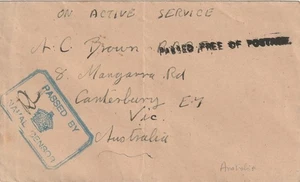 ON ACTIVE SERVICE
A. C. Brown
PASSED FREE OF POSTAGE.
8. Mangarra Rd
Canterbury E7
Vic.
Australia
PASSED BY
NAVAL CENSOR
Australia